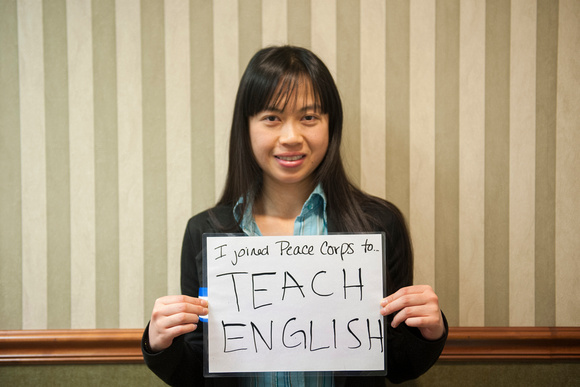 I joined Peace Corps to...
TEACH
ENGLISH